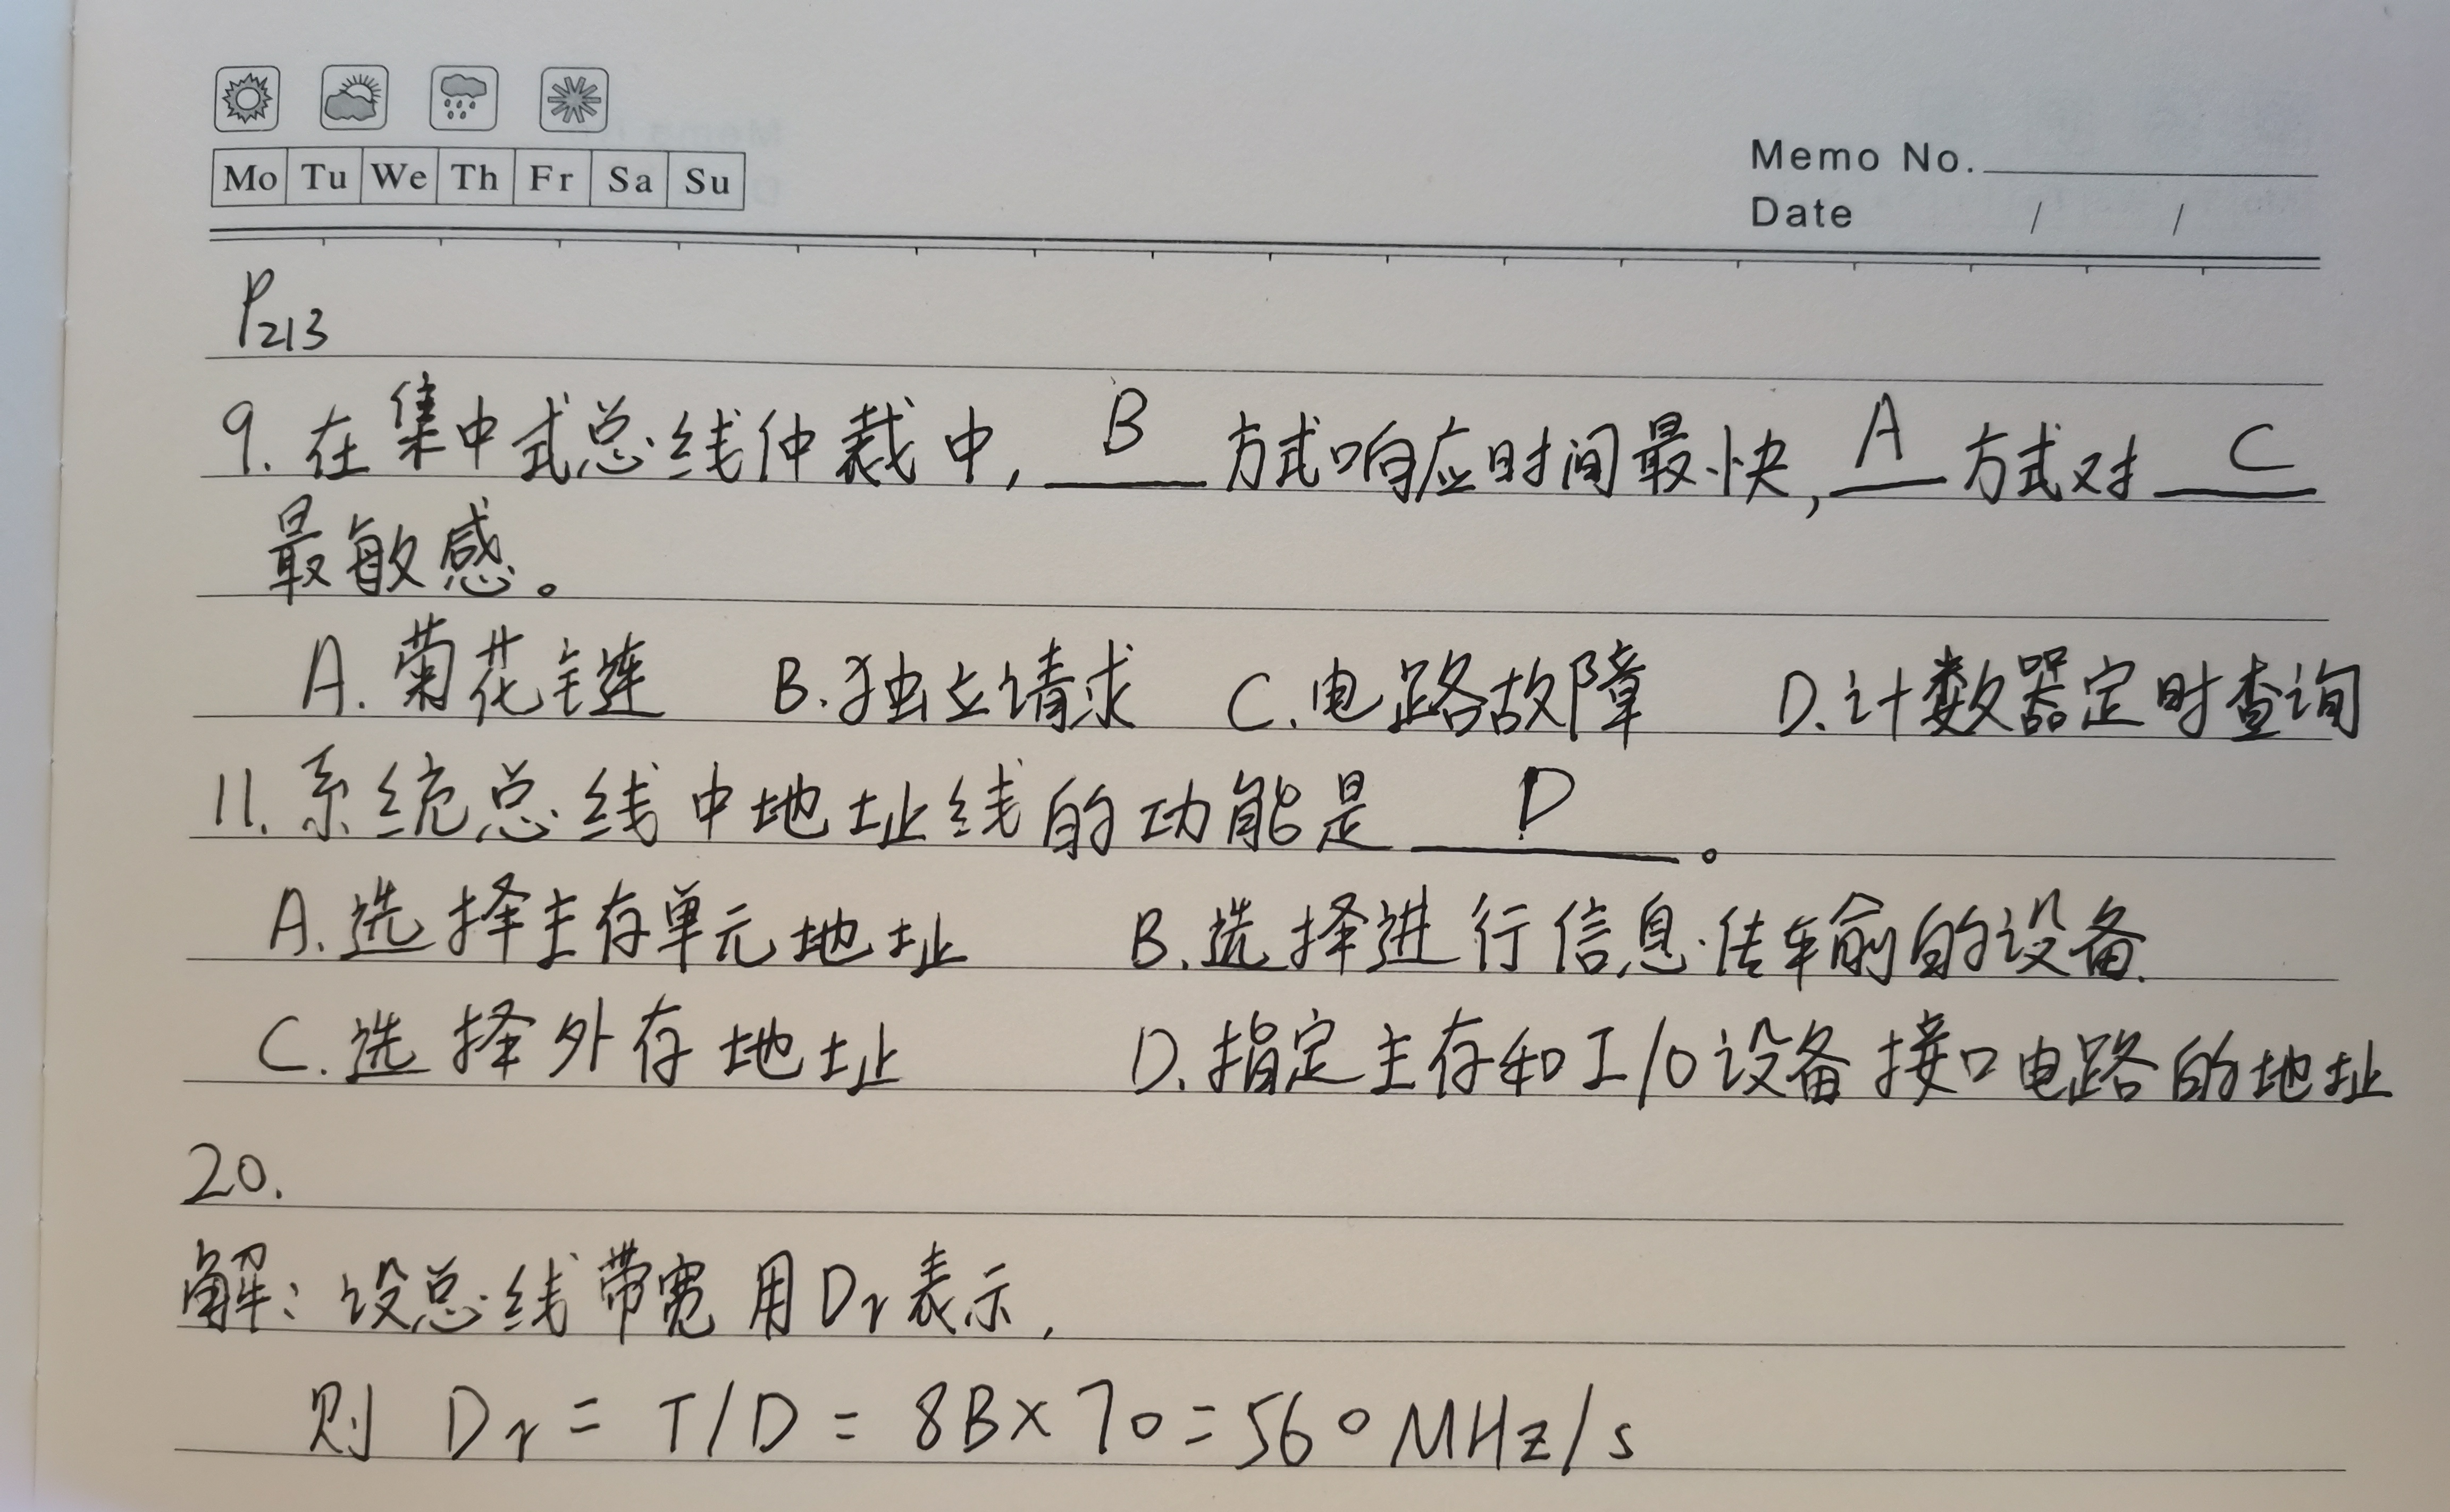 Mo Tu We Th Fr Sa Su
Memo No.
Date / /
P213
9. 在集中式总线仲裁中, B 方式响应时间最快, A 方式对 C
最敏感。
A. 菊花链 B. 独立请求 C. 电路故障 D. 计数器定时查询
11. 系统总线中地址线的功能是 D 。
A. 选择主存单元地址 B. 选择进行信息传输的设备.
C. 选择外存地址 D. 指定主存和I/O设备接口电路的地址
20.
解: 设总线带宽用Dr表示,
则 Dr = T/D = 8B×70=560MHz/s